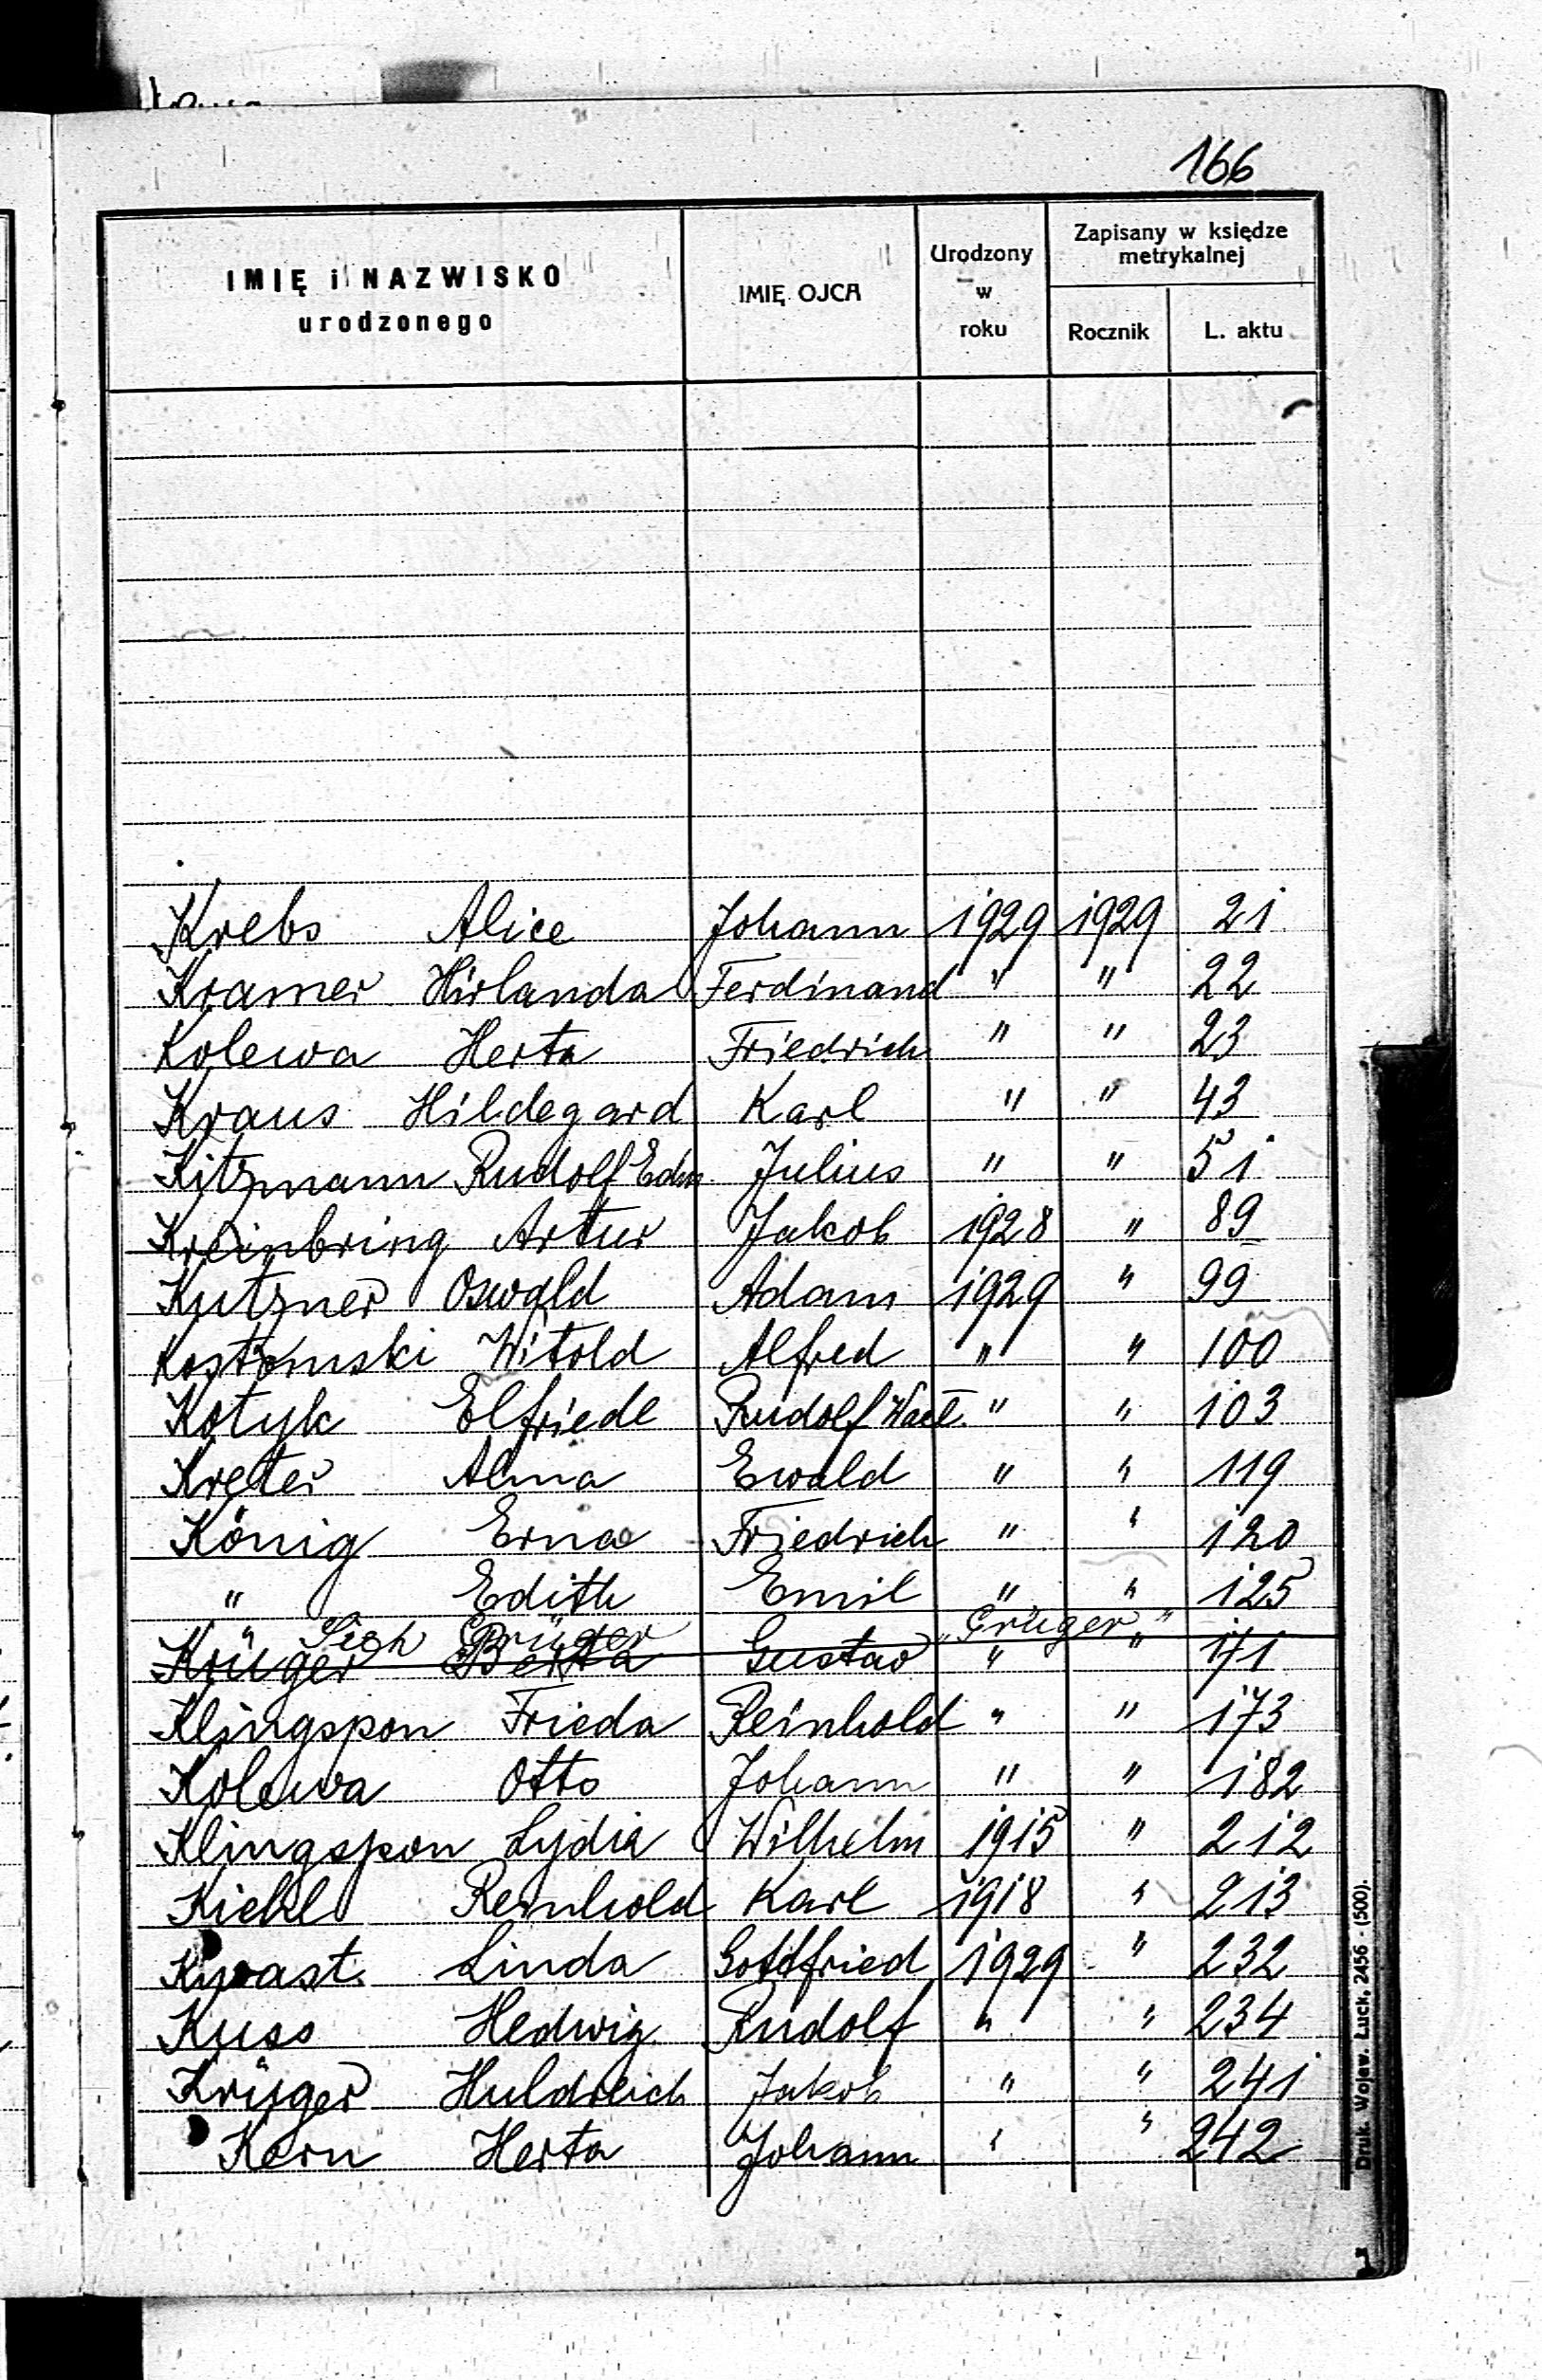 166
IMIĘ i NAZWISKO urodzonego | IMIĘ OJCA | Urodzony w roku | Zapisany w księdze metrykalnej
Rocznik | L. aktu
Krebs Alice Johann 1929 1929 21
Kramer Hirlanda Ferdinand " " 22
Kolewa Herta Friedrich " " 23
Kraus Hildegard Karl " " 43
Kitzmann Rudolf Edm Julius " " 51
Kreinbring Artur Jakob 1928 " 89
Kutzner Oswald Adam 1929 " 99
Kostomski Witold Alfred " " 100
Kotyk Elfriede Rudolf " " 103
Kreter Alma Ewald " " 119
König Erna Friedrich " " 120
" Edith Emil " " 125
" Sieh Grüger "Grüger"
Krüger Berta Gustav " " 171
Klingspon Frieda Reinhold " " 173
Kolewa Otto Johann " " 182
Klingspon Lydia Wilhelm 1915 " 212
Kiehl Reinhold Karl 1918 " 213
Kwast Linda Gottfried 1929 " 232
Kuss Hedwig Rudolf " " 234
Krüger Huldreich Jakob " " 241
Kern Herta Johann " " 242
Druk. Wojew. Łuck, 2456 - (500).